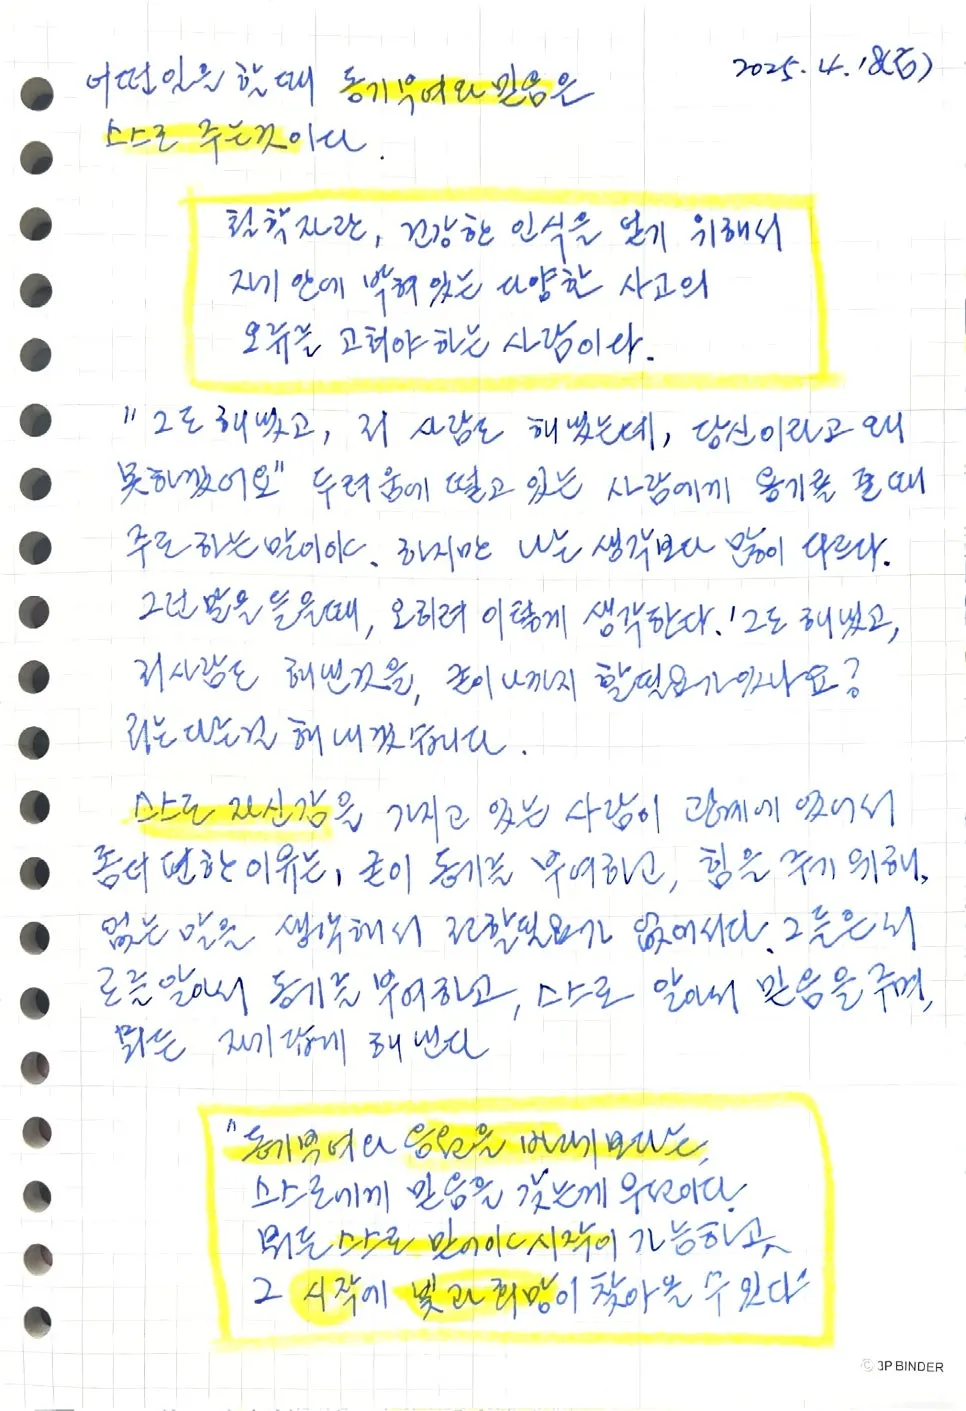 2025. 4. 18(금)
어떤 일을 할 때 동기부여와 믿음은
스스로 주는 것이다.
철학자란, 건강한 인식을 얻기 위해서
자기 안에 박혀 있는 다양한 사고의
오류를 고쳐야 하는 사람이다.
"그도 해냈고, 저 사람도 해냈는데, 당신이라고 왜
못하겠어요" 두려움에 떨고 있는 사람에게 용기를 줄 때
주로 하는 말이야. 하지만 나는 생각보다 많이 다르다.
그런 말을 들을때, 오히려 이렇게 생각한다. '그도 해냈고,
저사람도 해낸것을, 굳이 나까지 할필요가 있나요?
나는 다른걸 해내겠습니다.
스스로 자신감을 가지고 있는 사람이 관계에 있어서
좀더 편한 이유는, 굳이 동기를 부여하고, 힘을 주기 위해,
없는 말을 생각해서 전할필요가 없어서다. 그들은 서
로를 알아서 동기를 부여하고, 스스로 알아서 믿음을 주며,
뭐든 자기답게 해낸다
"동기부여나 응원을 바라기 보다는,
스스로에게 믿음을 갖는게 우선이다.
뭐든 스스로 믿어야 시작이 가능하고,
그 시작에 빛과 희망이 찾아올 수 있다"
© JP BINDER